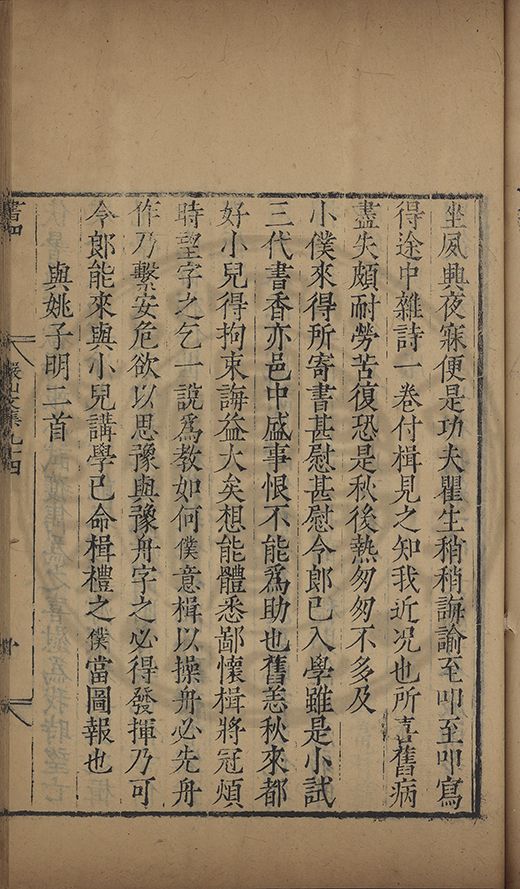 坐夙興夜寐便是功夫瞿生稍稍誨諭至叩至叩寫
得途中雜詩一卷付楫見之知我近况也所喜舊病
盡失頗耐勞苦復恐是秋後熱匆匆不多及
小僕來得所寄書甚慰甚慰令郎已入學雖是小試
三代書香亦邑中盛事恨不能爲助也舊恙秋來都
好小兒得拘束誨益大矣想能體悉鄙懷楫將冠煩
時望字之乞一說爲教如何僕意楫以操舟必先舟
作乃繫安危欲以思豫與豫舟字之必得發揮乃可
令郎能來與小兒講學已命楫禮之僕當圖報也
與姚子明二首